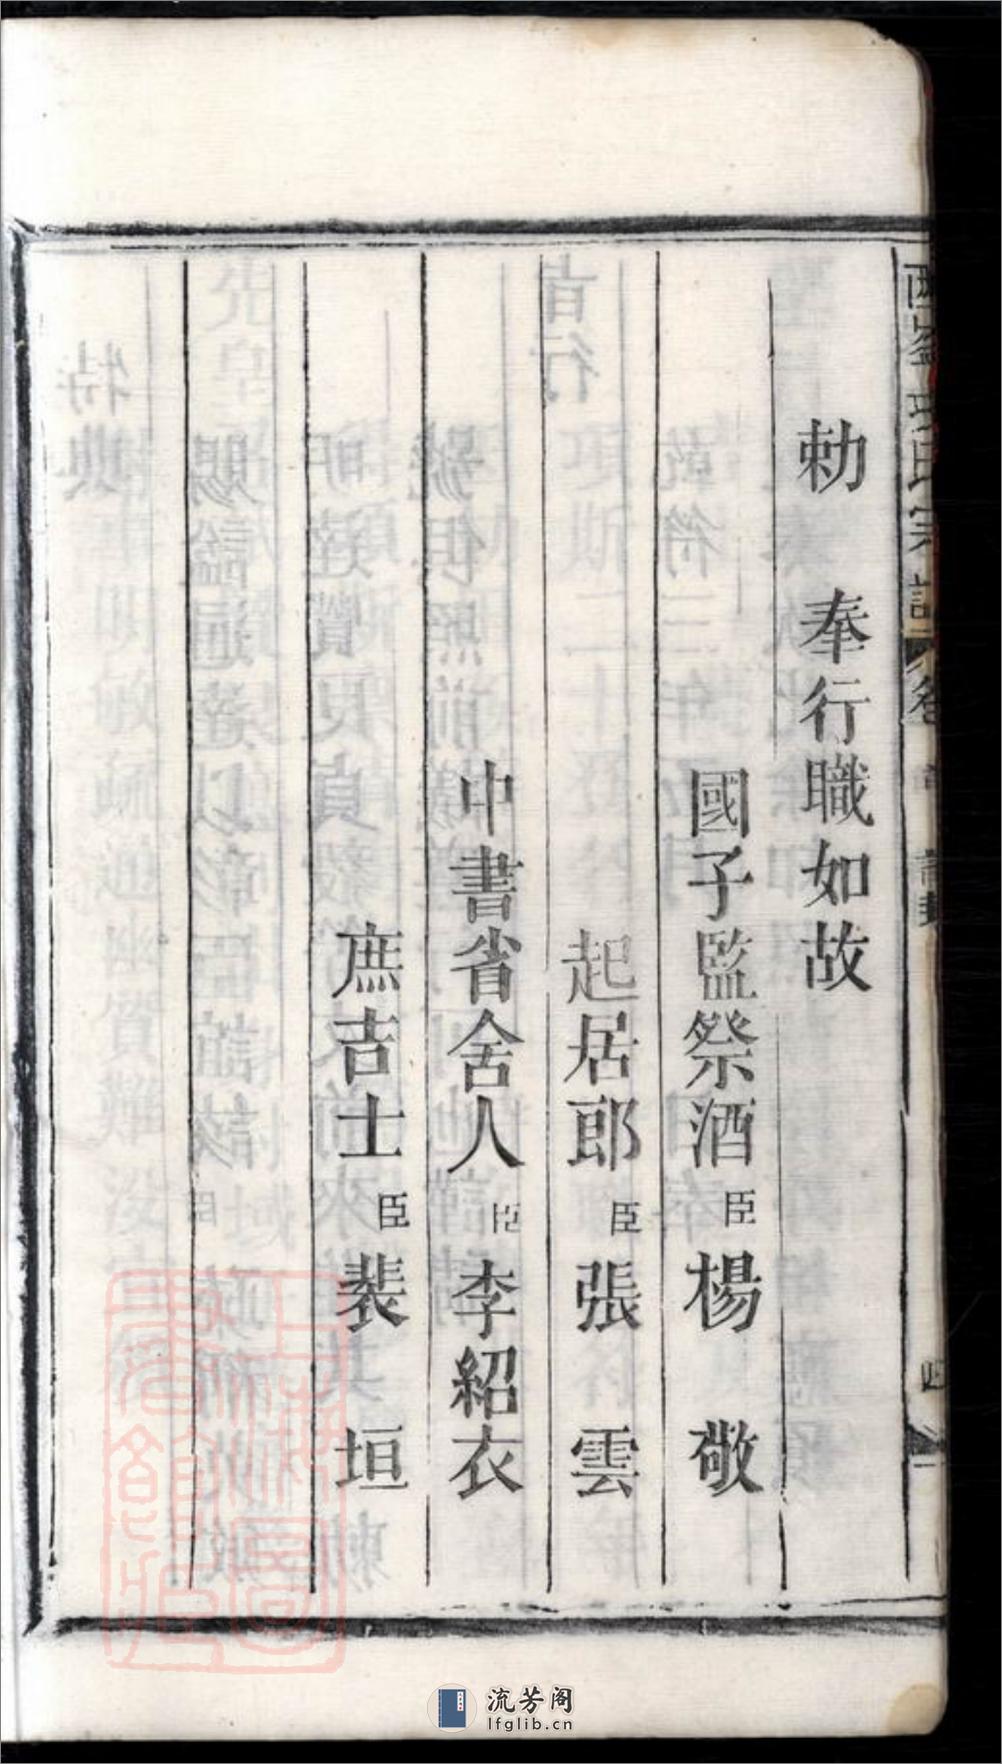 勅　奉行職如故
國子監祭酒臣楊　敬
起居郎臣張　雲
中書省舍人臣李紹衣
庶吉士臣裴　垣
流芳阁
lfglib.cn